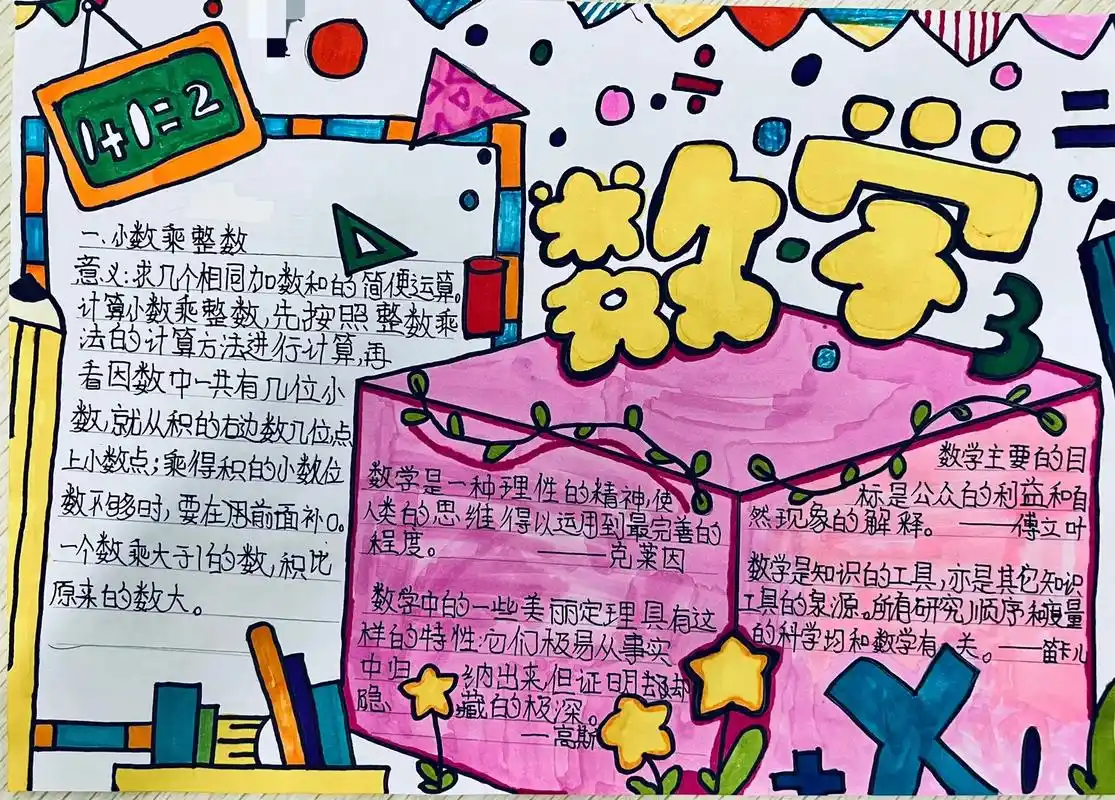 1+1=2
数学
3
一、小数乘整数
意义:求几个相同加数和的简便运算。
计算小数乘整数,先按照整数乘
法的计算方法进行计算,再
看因数中一共有几位小
数,就从积的右边数几位,点
上小数点;乘得积的小数位
数不够时,要在用前面补0。
一个数乘大于1的数,积比
原来的数大。
数学是一种理性的精神,使
人类的思维得以运用到最完善的
程度。 ——克莱因
数学中的一些美丽定理具有这
样的特性:它们极易从事实
中归纳出来,但证明却
隐藏的极深。
—高斯
数学主要的目
标是公众的利益和自
然现象的解释。 ——傅立叶
数学是知识的工具,亦是其它知识
工具的泉源。所有研究顺序和度量
的科学均和数学有关。——笛卡儿